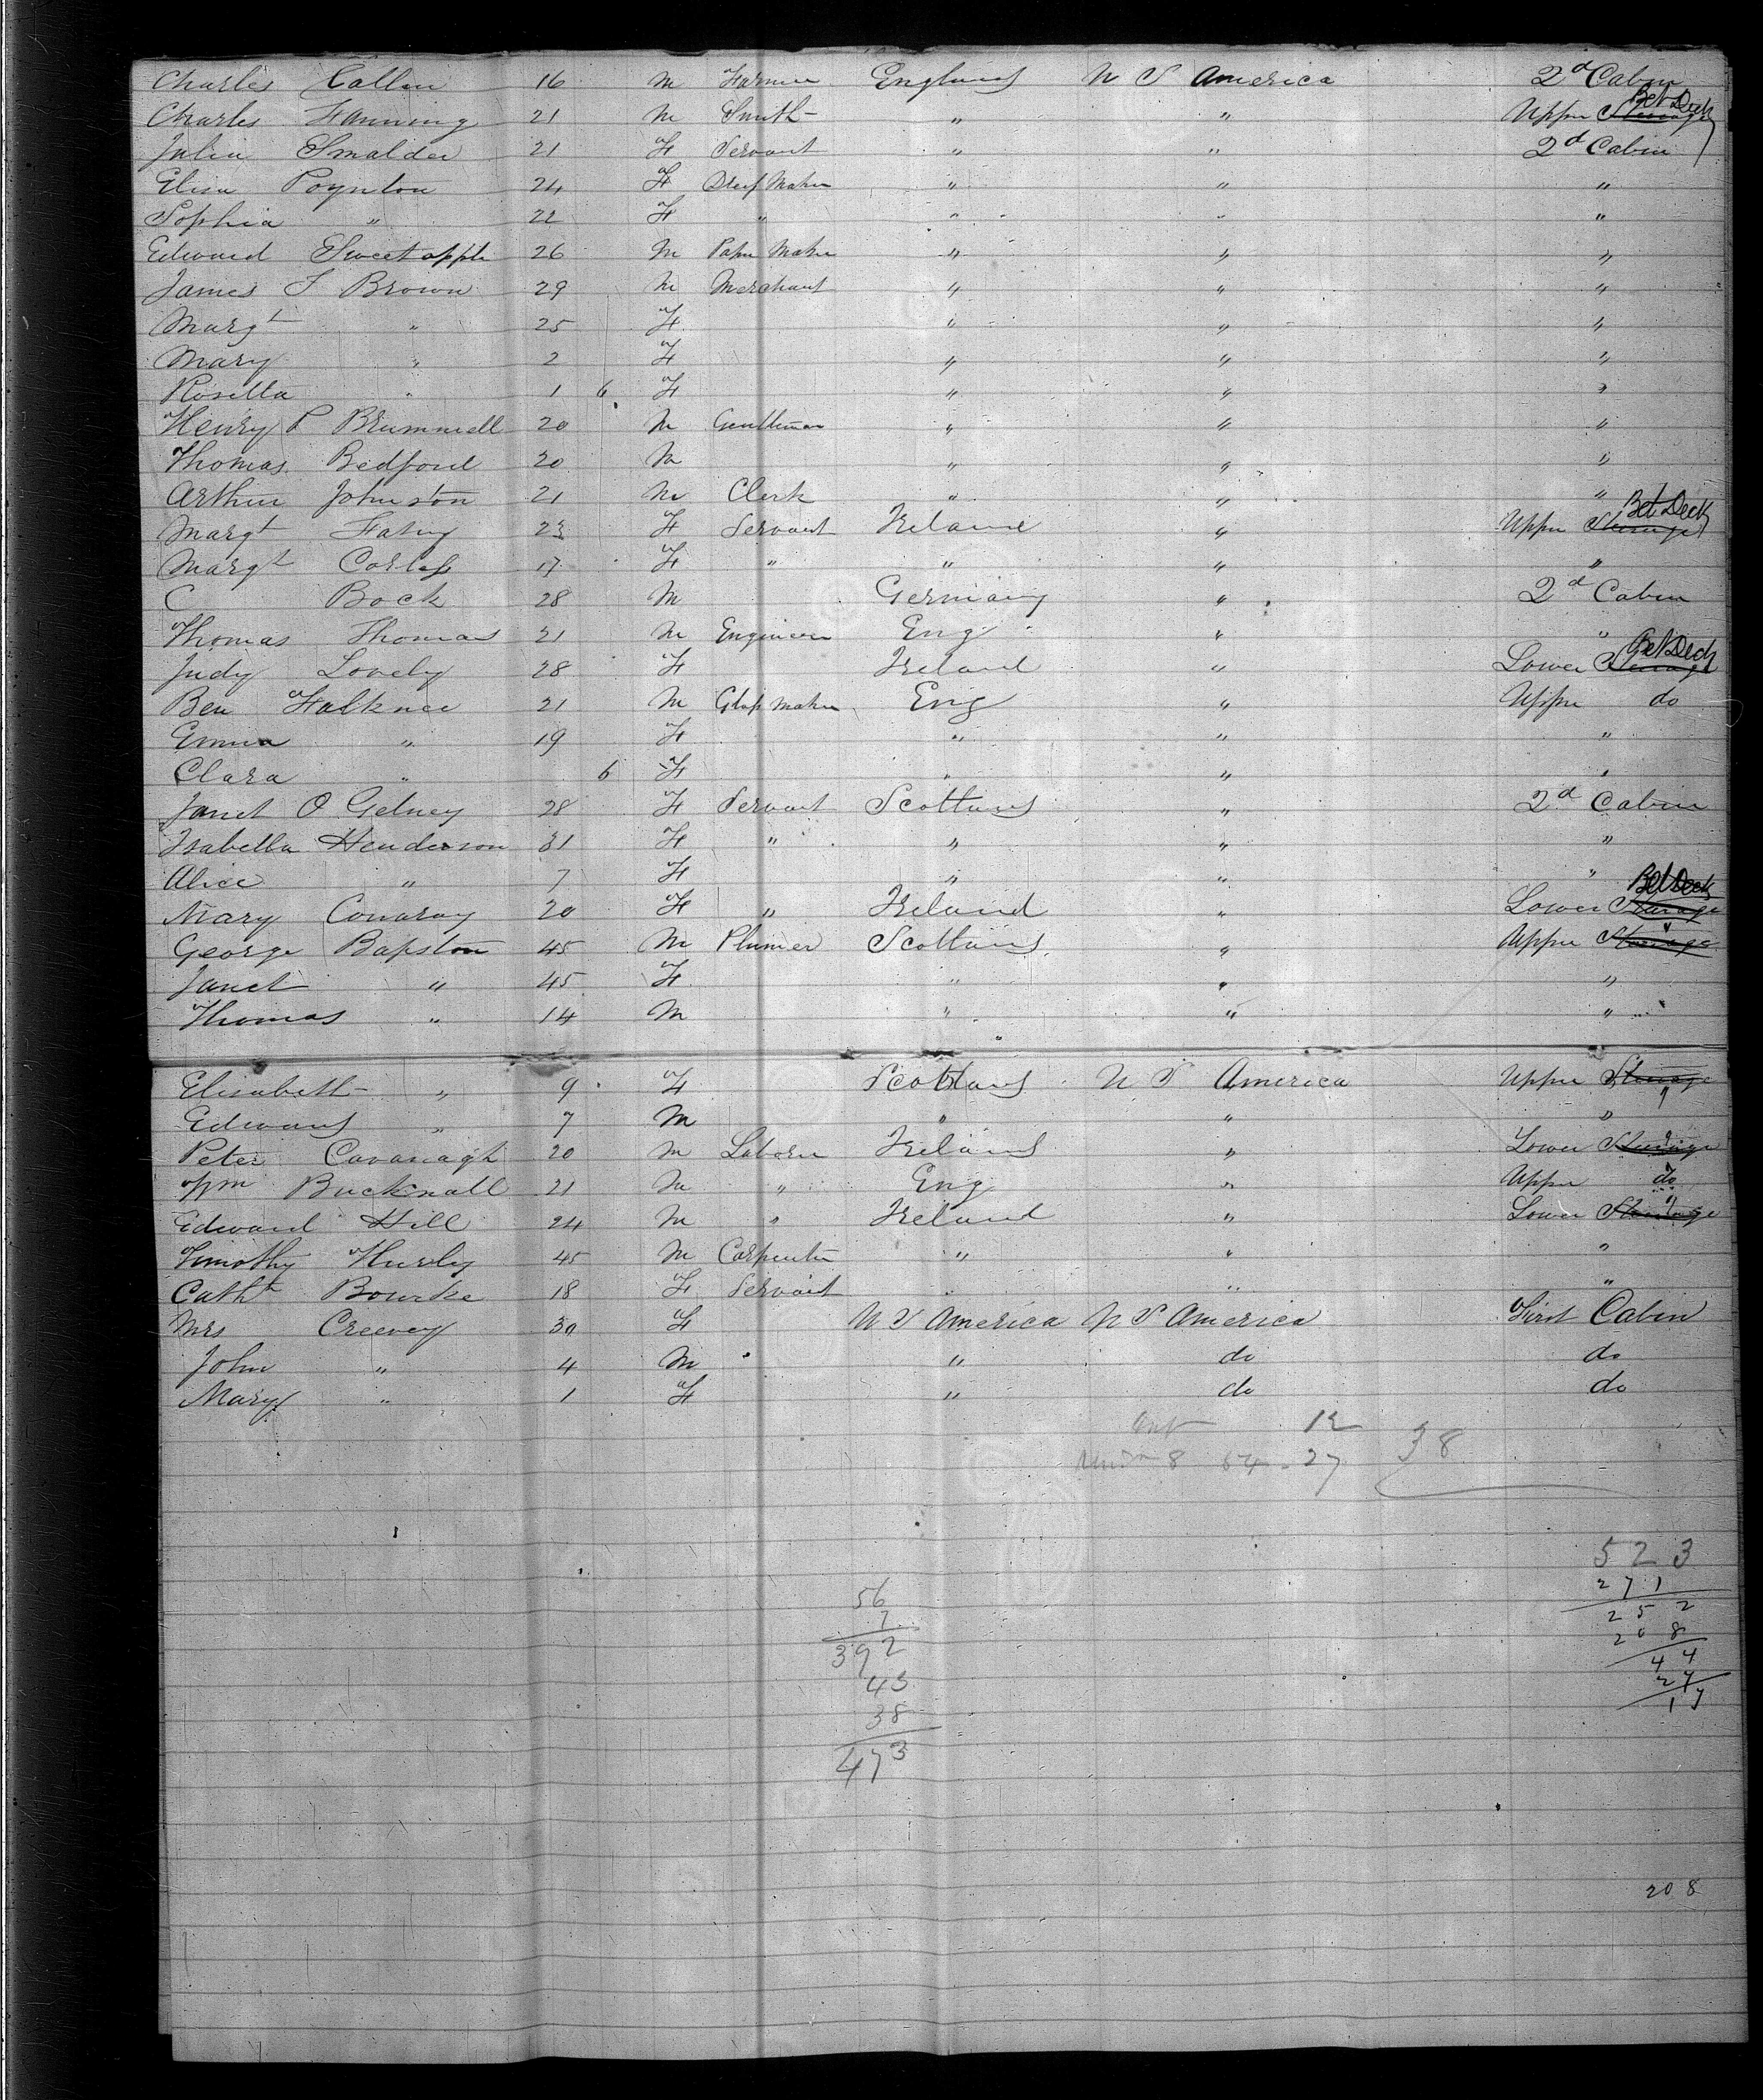 Charles Callan 16 M Farmer England U S America 2d Cabin
Charles Fanning 21 M Smith " " Upper Steerage Bet Deck
Julia Smalder 21 F Servant " " 2d Cabin
Elisa Poynton 24 F Dress Maker " " "
Sophia " 22 F " " " "
Edward Sweetapple 26 M Paper Maker " " "
James T Brown 29 M Merchant " " "
Margt " 25 F " " "
Mary " 2 F " " "
Rosetta " 1 6 F " " "
Henry P Brummell 20 M Gentleman " " "
Thomas Bedford 20 M " " "
Arthur Johnston 21 M Clerk " " "
Margt Fahy 23 F Servant Ireland " Upper Steerage Bet Deck
Margt Corless 17 F " " " "
C Bock 28 M Germany " 2d Cabin
Thomas Thomas 21 M Engineer Eng " "
Judy Lovely 28 F Ireland " Lower Steerage Bet Deck
Ben Falkner 21 M Glass Maker Eng " Upper do
Emma " 19 F " " "
Clara " 6 F " " "
Janet O Gelney 28 F Servant Scotland " 2d Cabin
Isabella Henderson 31 F " " " "
Alice " 7 F " " "
Mary Conaray 20 F " Ireland " Lower Steerage Bet Deck
George Bapston 45 M Plumer Scotland " Upper Steerage "
Janet " 45 F " " "
Thomas " 14 M " " "
Elisabeth " 9 F Scotland U S America Upper Steerage "
Edward " 7 M " " "
Peter Cavanagh 20 M Laborer Ireland " Lower Steerage "
Wm Bucknall 21 M " Eng " Upper do "
Edward Hill 24 M " Ireland " Lower Steerage "
Timothy Hurly 45 M Carpenter " " "
Catht Bourke 18 F Servant " " "
Mrs Creevey 30 F U S America U S America First Cabin
John " 4 M " do do
Mary " 1 F " do do
12
8 64 - 27 38
523
271
252
208
44
27
17
56
7
392
43
38
473
208